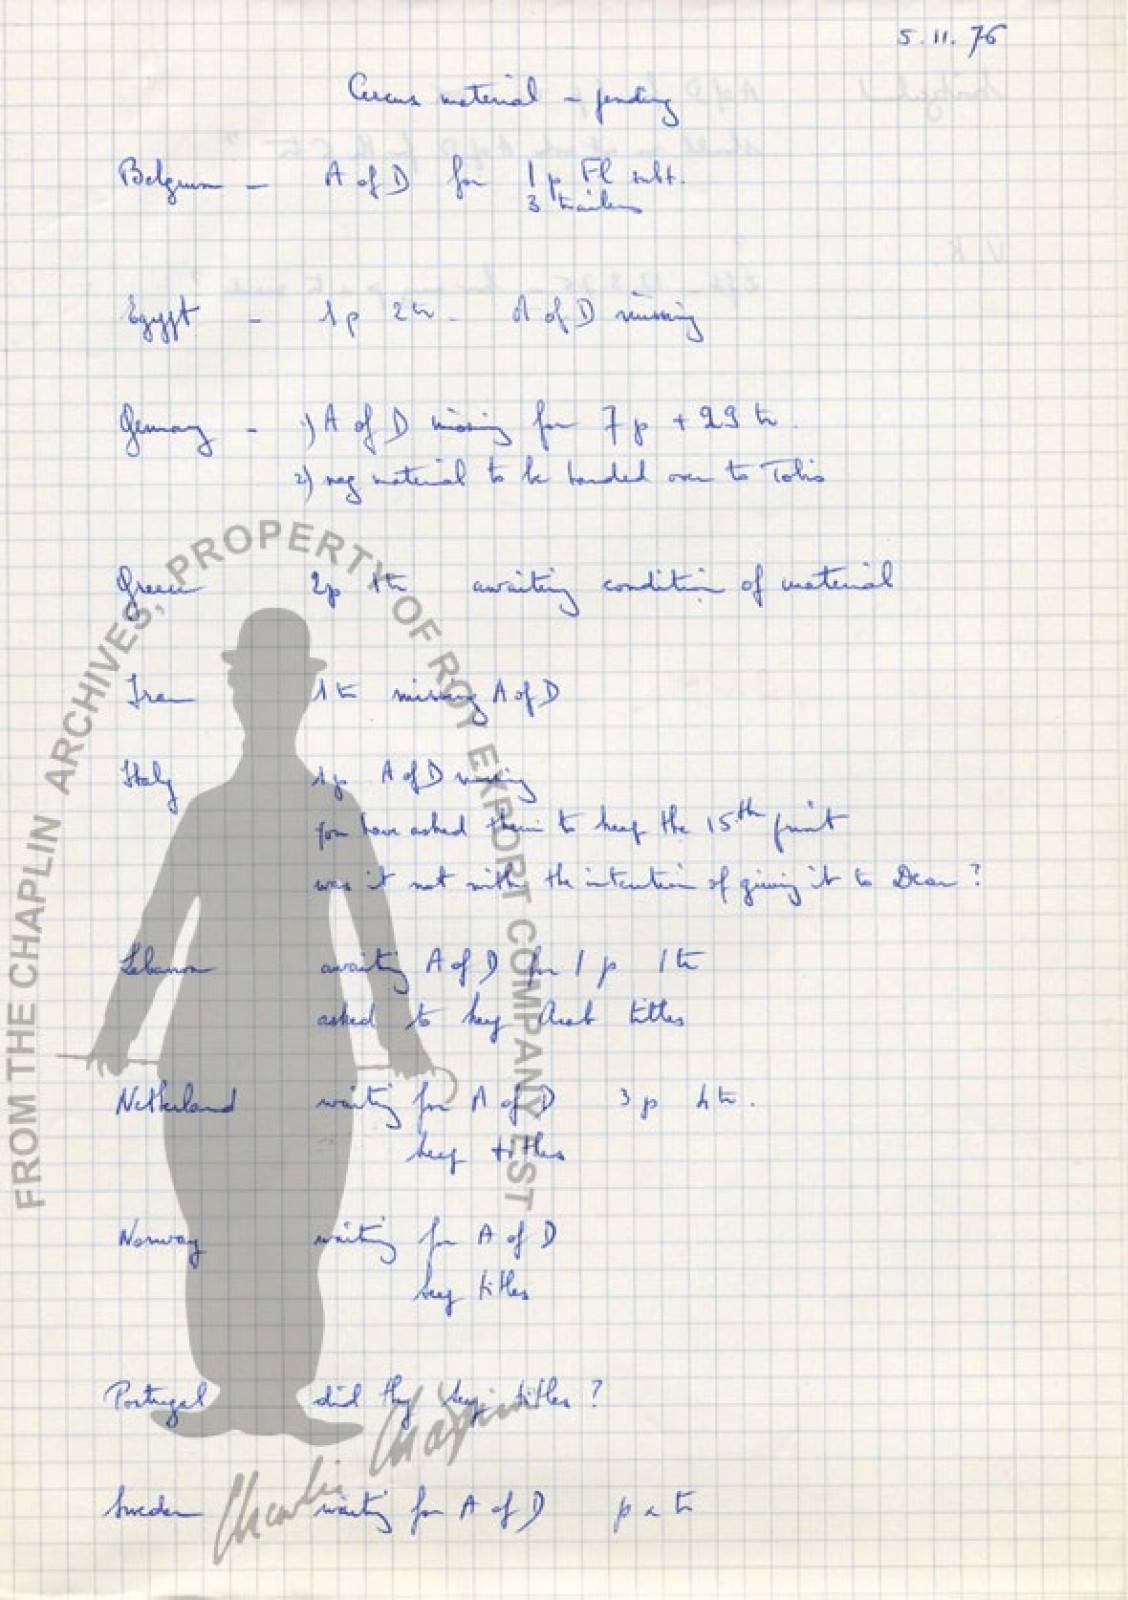 5.11.76
Circus material - pending
Belgium - A of D for 1 p Fl subt.
3 trailers
Egypt - 1p 2tr - A of D missing
Germany - 1) A of D missing for 7 p + 29 tr.
2) neg material to be handed over to Tobis
Greece 2p 1tr awaiting condition of material
Iran 1tr missing A of D
Italy 1p A of D missing
you have asked them to keep the 15th print
was it not with the intention of giving it to Dean?
Lebanon awaiting A of D for 1 p 1tr
asked to keep Arab titles
Netherland waiting for A of D 3p 4tr.
keep titles
Norway waiting for A of D
keep titles
Portugal did they keep titles?
Sweden waiting for A of D p & tr
FROM THE CHAPLIN ARCHIVES, PROPERTY OF ROY EXPORT COMPANY EST
Charlie Chaplin